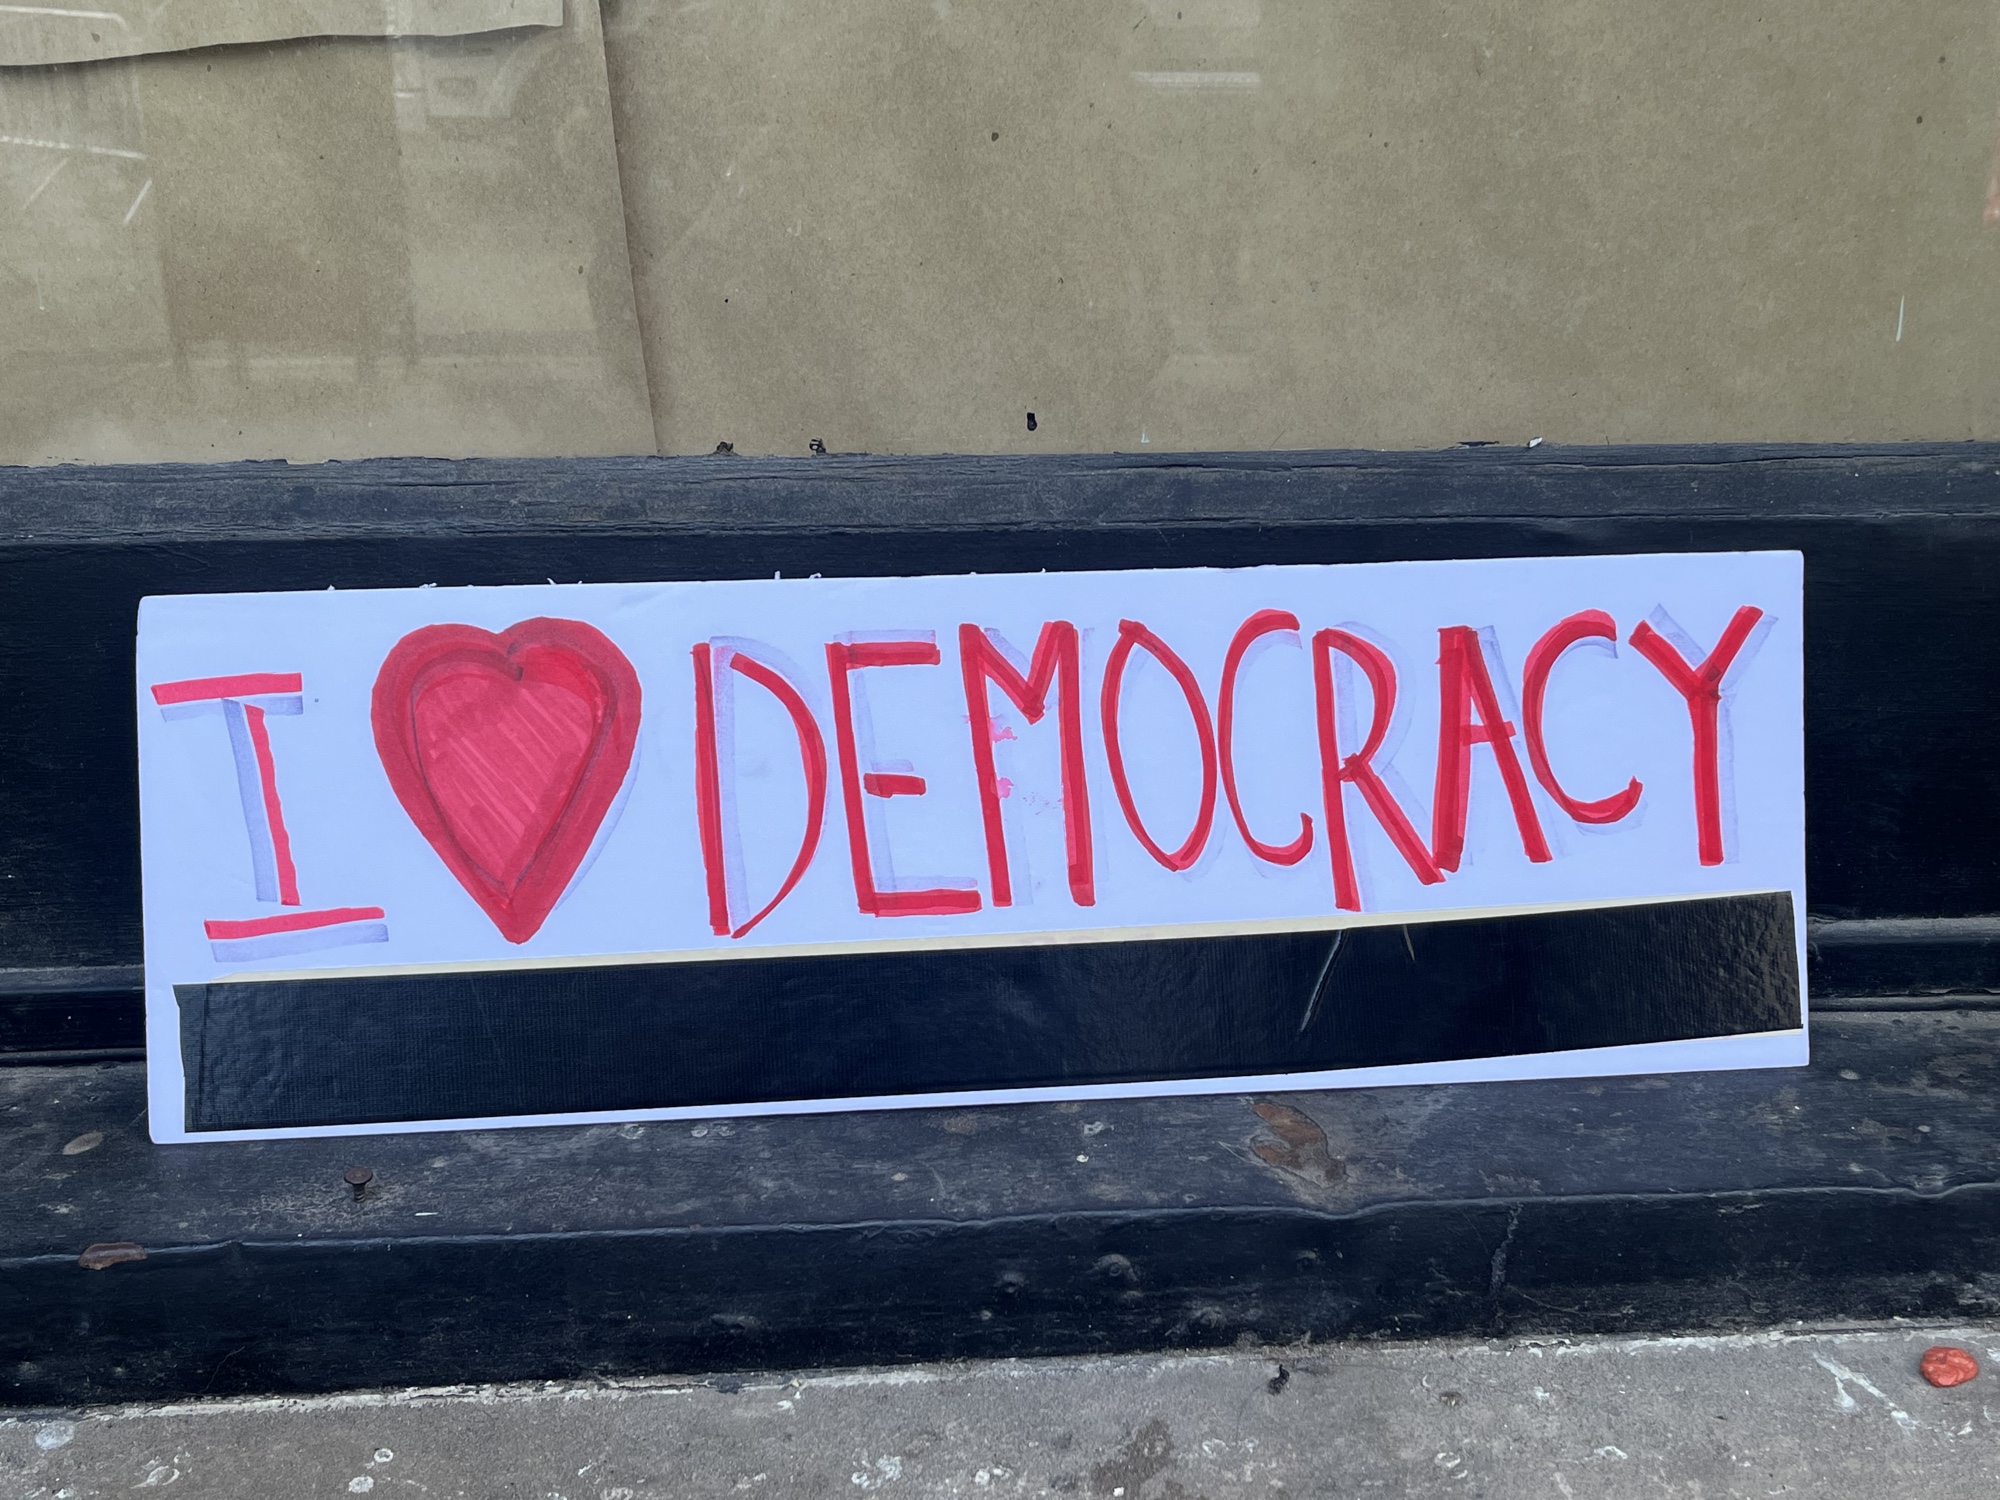 I ♥ DEMOCRACY